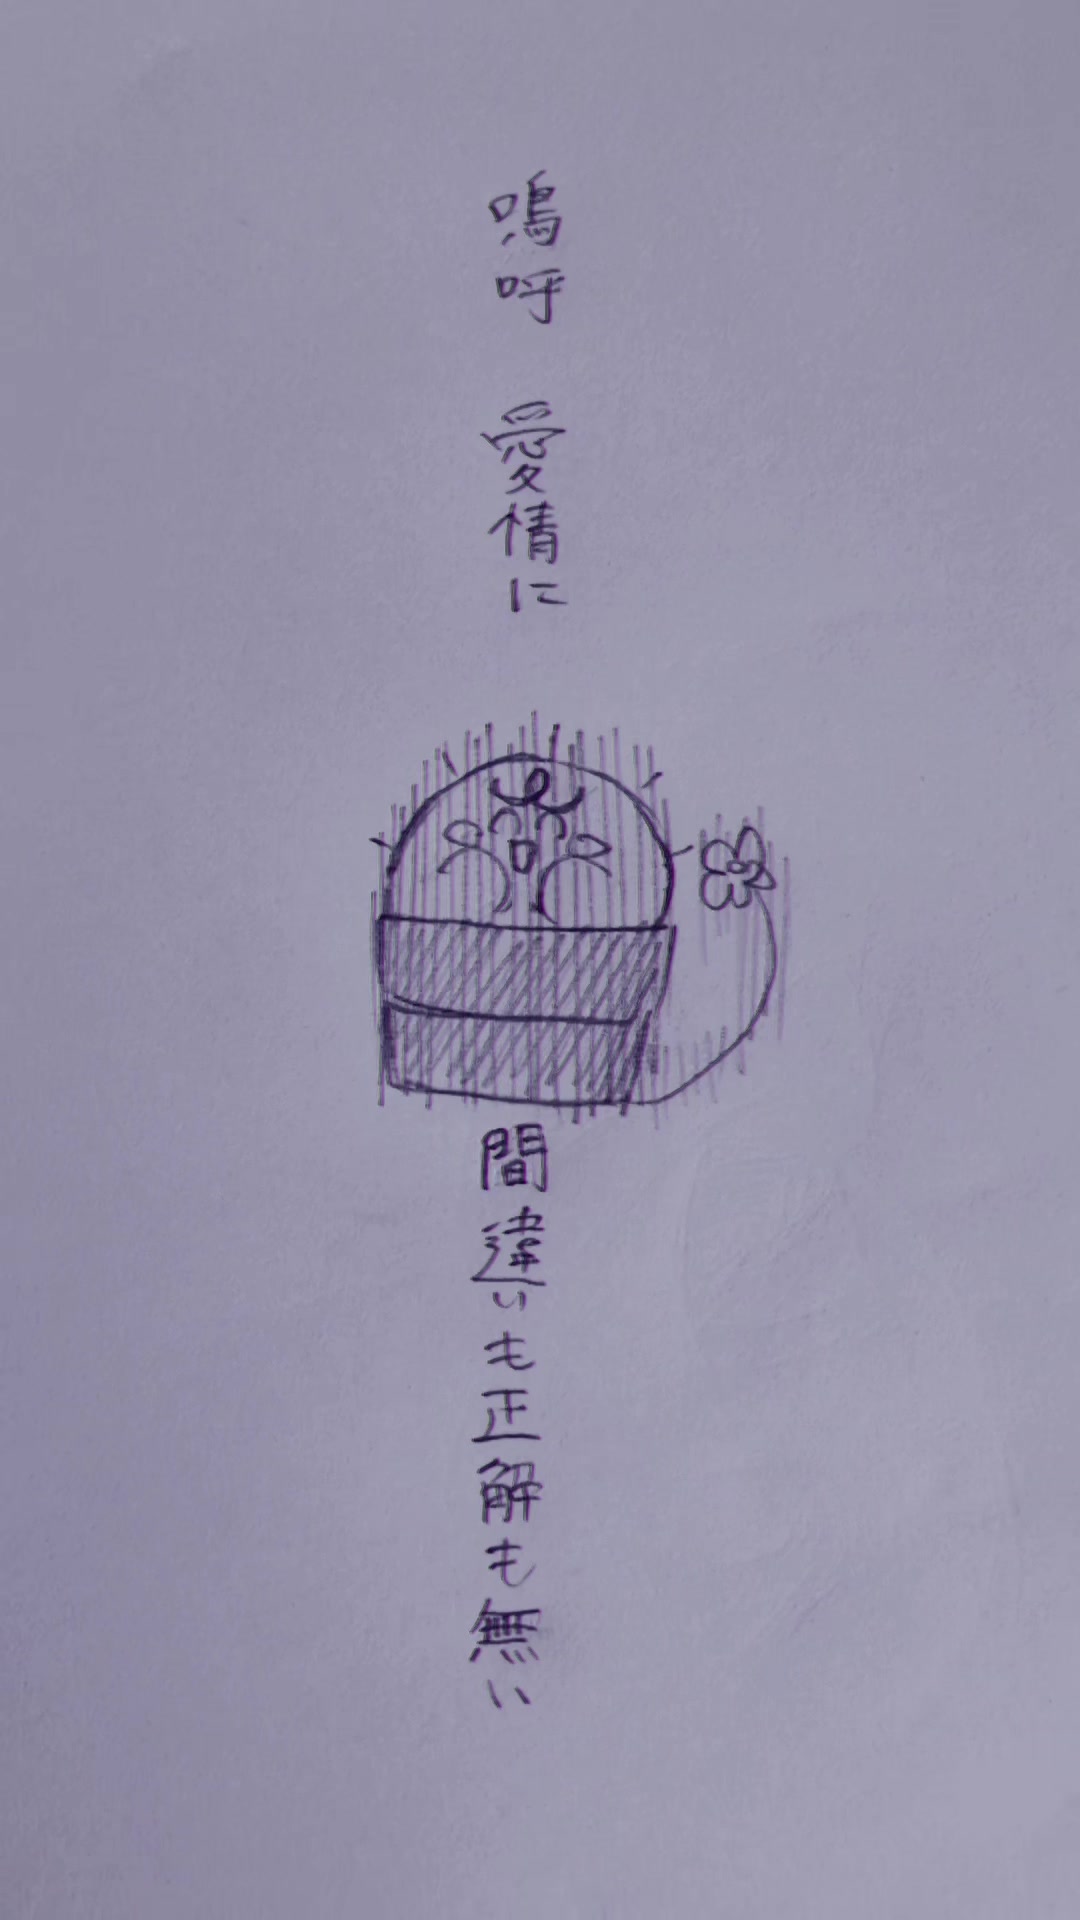 嗚呼 愛情に
間違いも正解も無い